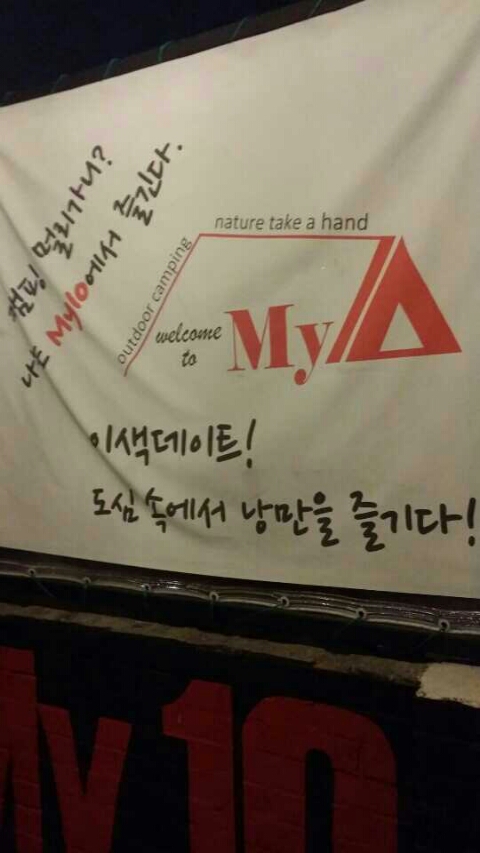 캠핑 멀리가니?
나는 Mylo에서 즐긴다.
nature take a hand
outdoor camping
welcome
to
My
이색데이트!
도심 속에서 낭만을 즐기다!
My 10